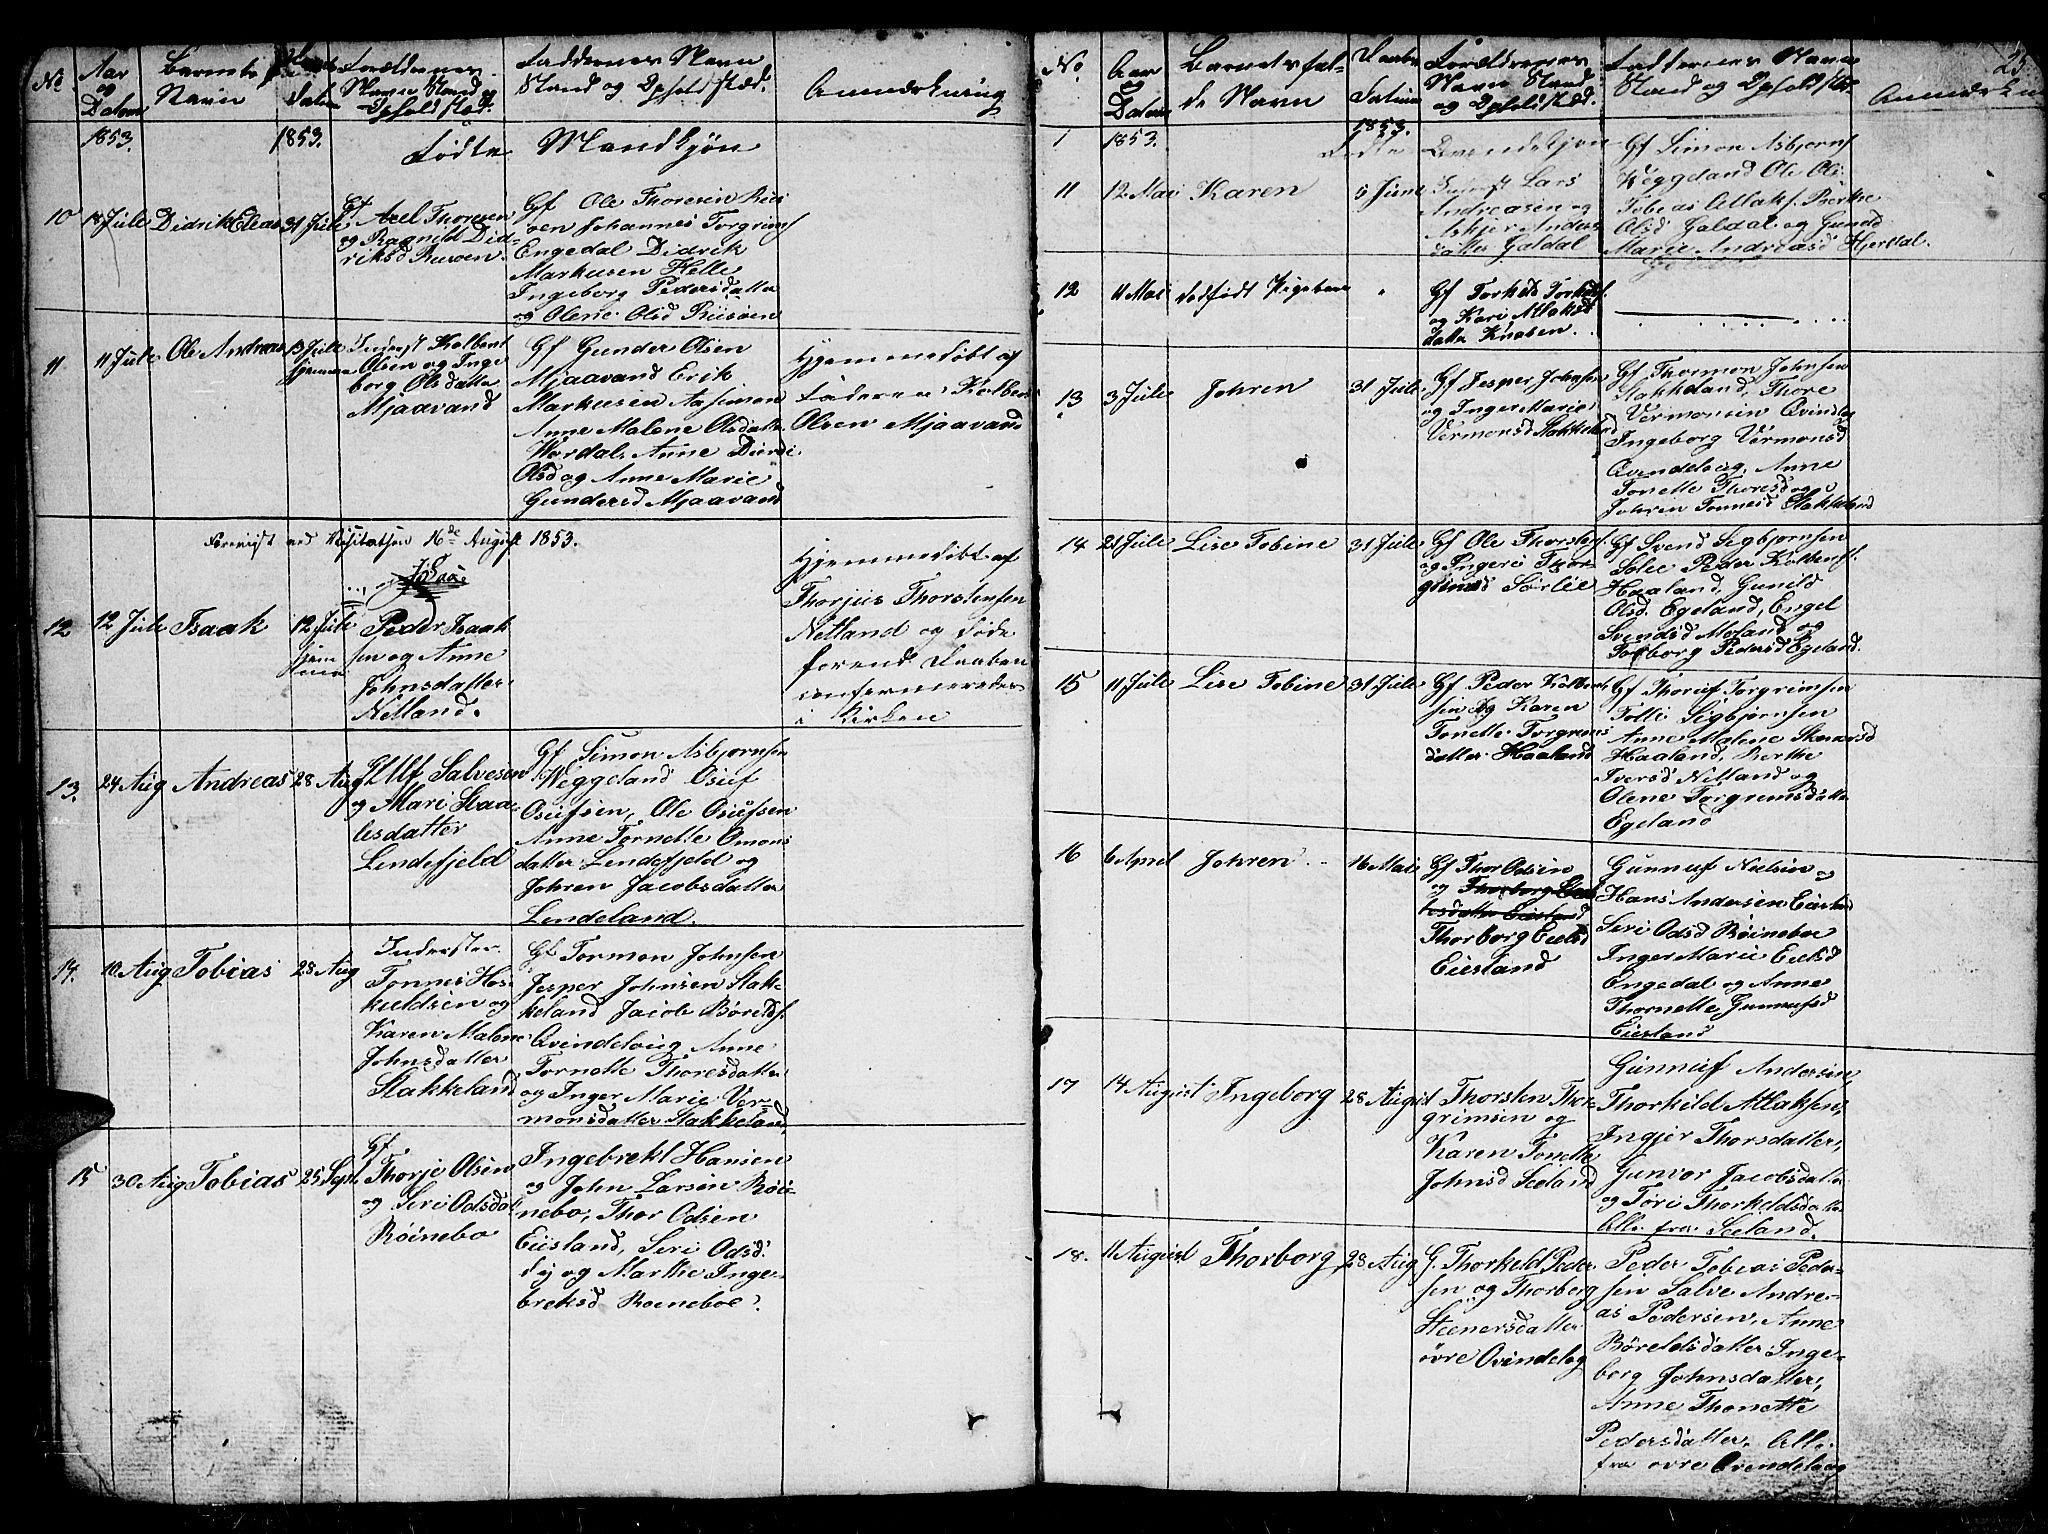 No
Aar
og
Datum
Navn
Datum
Forældrenes
Navn Stand og
Opholdsted.
Faddernes Navn
Stand og Opholdsted.
Anmærkning
1853.
1853.
Fødte Mandkjøn
10
Jule
Didrik Elias
31 Jule
Gf
Axel Thoresen
og Ragnild Did-
riksd Rusøen
Gf Ole Thoresen Rus
øen Johannes Torgrims
Engedal Didrik
Markusen Helle
Ingeborg Pedersdatter
og Olene Olsd Rusøen
11
11 Jule
Ole Andreas
13 Jule
Inderst Kolbent
Olsen og Inge
borg Olsdatter
Mjaavand
Gf Gunder Olsen
Mjaavand Erik
Markusen Aasimon
Anne Malene Olsdatter
Wordal, Anne
Olsd og Anne Marie
Gundersd Mjaavand
Hjemmedøbt af
Faderen Kolben
Olsen Mjaavand
Forevist ved Visitatsen 16de August 1853.
12
12 Jule
Isaak
12 Jule
hjem
me
Peder Isaak
sen og Anne
Johnsdatter
Netland.
Hjemmedøbt af
Thorjus Thorstensen
Netland og døde
forend Daaben
confermeredes
i Kirken
13.
24 Aug
Andreas
28 Aug
Ulf Salvesen
og Mari Staa-
lesdatter
Lendefjeld
Gf Simon Asbjørnsen
Weggeland Osuf
Osufsen, Ole Osufsen
Anne Tornette Omons
datter Lendefjeld og
Johren Jacobsdatter
Lendeland.
14.
10 Aug
Tobias
28 Aug
Inderster
Tønnes Hos-
kuldsen og
Karen Malene
Johnsdatter
Stakkeland
Gf Tormon Johnsen
Jesper Johnsen Stak-
keland Jacob Børelds.
Ovindeloug Anne
Tornette Thoresdatter
og Inger Marie Ver-
monsdatter Stakkeland
15
30 Aug
Tobias
25 Sept.
Gf
Thorje Olsen
og Seri Odsdat
Røinebo
Ingebrekt Hansen
og John Larsen Røi-
nebo, Thor Odsen
Eiesland, Seri Odsd.
og Marthe Inge-
breksd Roeneboe.
No
Aar
Datum
Barnets ful-
de Navn
Daabs
Datum
Forældrenes
Navn Stand
og Opholdsted.
Faddernes Navn
Stand og Opholdsted
Anmærkn
25
1
1853.
1853.
Fødte Qvindekjøn
11
12 Mai
Karen
5 June
Inderst Lars
Andreasen og
Asbjer Anders
datter Galdal
Gf Simon Asbjørns
Weggeland Ole Ols
Tobias Atlaks. Berthe
Olsd Galdal og Gunild
Marie Andreasd Hjerdal.
12
11 Mai
Dødfødt Pigebarn
"
Gf Torkild Torkels.
og Kari Atlaks
datter Knaben.
13
3 Jule
Johren
31 Jule
Gf Jesper Johnsen
og Inger Marie
Vermonsd Stakkeland
Gf Thormon Johnsen
Stakkeland, Thore
Vermonsen Ovindlog
Ingeborg Vermonsd
Ovendeloug, Anne
Tonette Thoresd og
Johren Tønnesd Stakkeland
14
21 Jule
Lise Tobine
31 Jule
Gf Ole Thorstens.
og Ingeri Thor
grimsd Sørlie
Gf Svend Sigbjørnsen
Solie Peder Kolbens.
Haaland, Gunild
Olsd. Egeland, Engel
Svendsd Moland og
Torborg Pedersd Egeland.
15
11 Jule
Lise Tobine
31 Jule
Gf Peder Kolbent
sen og Karen
Tonette Torgrims
datter Haaland
Gf Thoruf Torgrimsen
Tolli Sigbjørnsen
Anne Malene
Haaland, Berthe
Iversd Netland og
Olene Torgrimsdatter
Egeland
16
6 April
Johren
16 Mai
Gf Thor Odsen
og
Thorborg Eielsd
Eiesland
Gunnuf Nielsen og
Hans Andersen Eiesland
Seri Odsd Røineboe
Inger Marie Eielsd
Engedal og Anne
Thornette Gunnufsd
Eiesland
17
14 August
Ingeborg
28 August
Thorsten Thor-
grimsen og
Karen Tonette
Johnsd Seeland
Gunnuf Andersen,
Thorkild Atlaksen,
Ingjer Thorsdatter,
Gunvor Jacobsdatter
og Tøri Thorkeldsdatter
Alle fra Seeland.
18.
11 August
Thorborg
28 Aug
G. Thorkeld Peder
sen og Thorberg
Steenersdatter
øvre Ovindelog
Peder Tobias Peder-
sen Salve Andre-
as Pedersen, Anne
Børeldsdatter Inge-
borg Johnsdatter,
Anne Thonette
Pedersdatter. Alle
fra øvre Ovendeloug